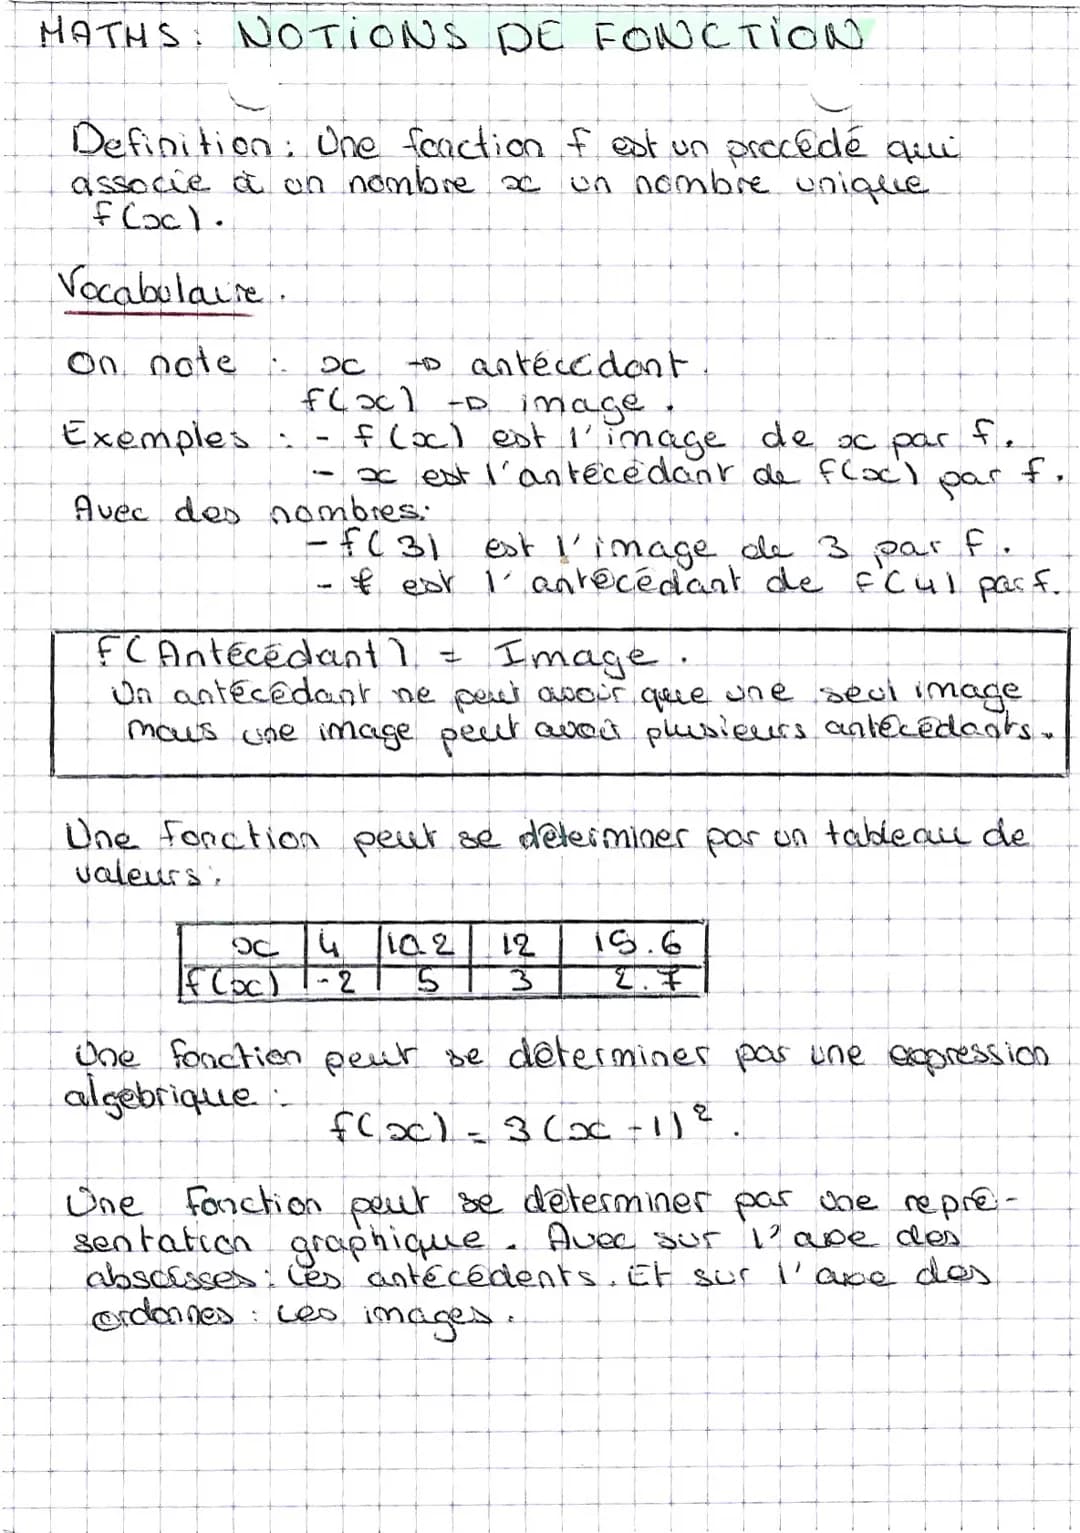 MATHS: NOTIONS DE FONCTION
Definition: Une fonction f est un procédé qui
associe à un nombre x un nombre unique
f(x).
Vocabulaire.
On note : x → antécédant.
f(x) → image.
Exemples : - f(x) est l'image de x par f.
- x est l'antécédant de f(x) par f.
Avec des nombres:
- f(3) est l'image de 3 par f.
- f est l'antécédant de f(4) par f.
f(Antécédant) = Image.
Un antécédant ne peut avoir que une seul image
mais une image peut avoir plusieurs antécédants.
Une fonction peut se déterminer par un tableau de
valeurs:
x 4 10.2 12 15.6
f(x) -2 5 3 2.7
Une fonction peut se déterminer par une expression
algébrique :
f(x) = 3(x-1)².
Une fonction peut se déterminer par une repré-
sentation graphique. Avec sur l'axe des
abscisses: les antécédents. Et sur l'axe des
ordonnes : les images.